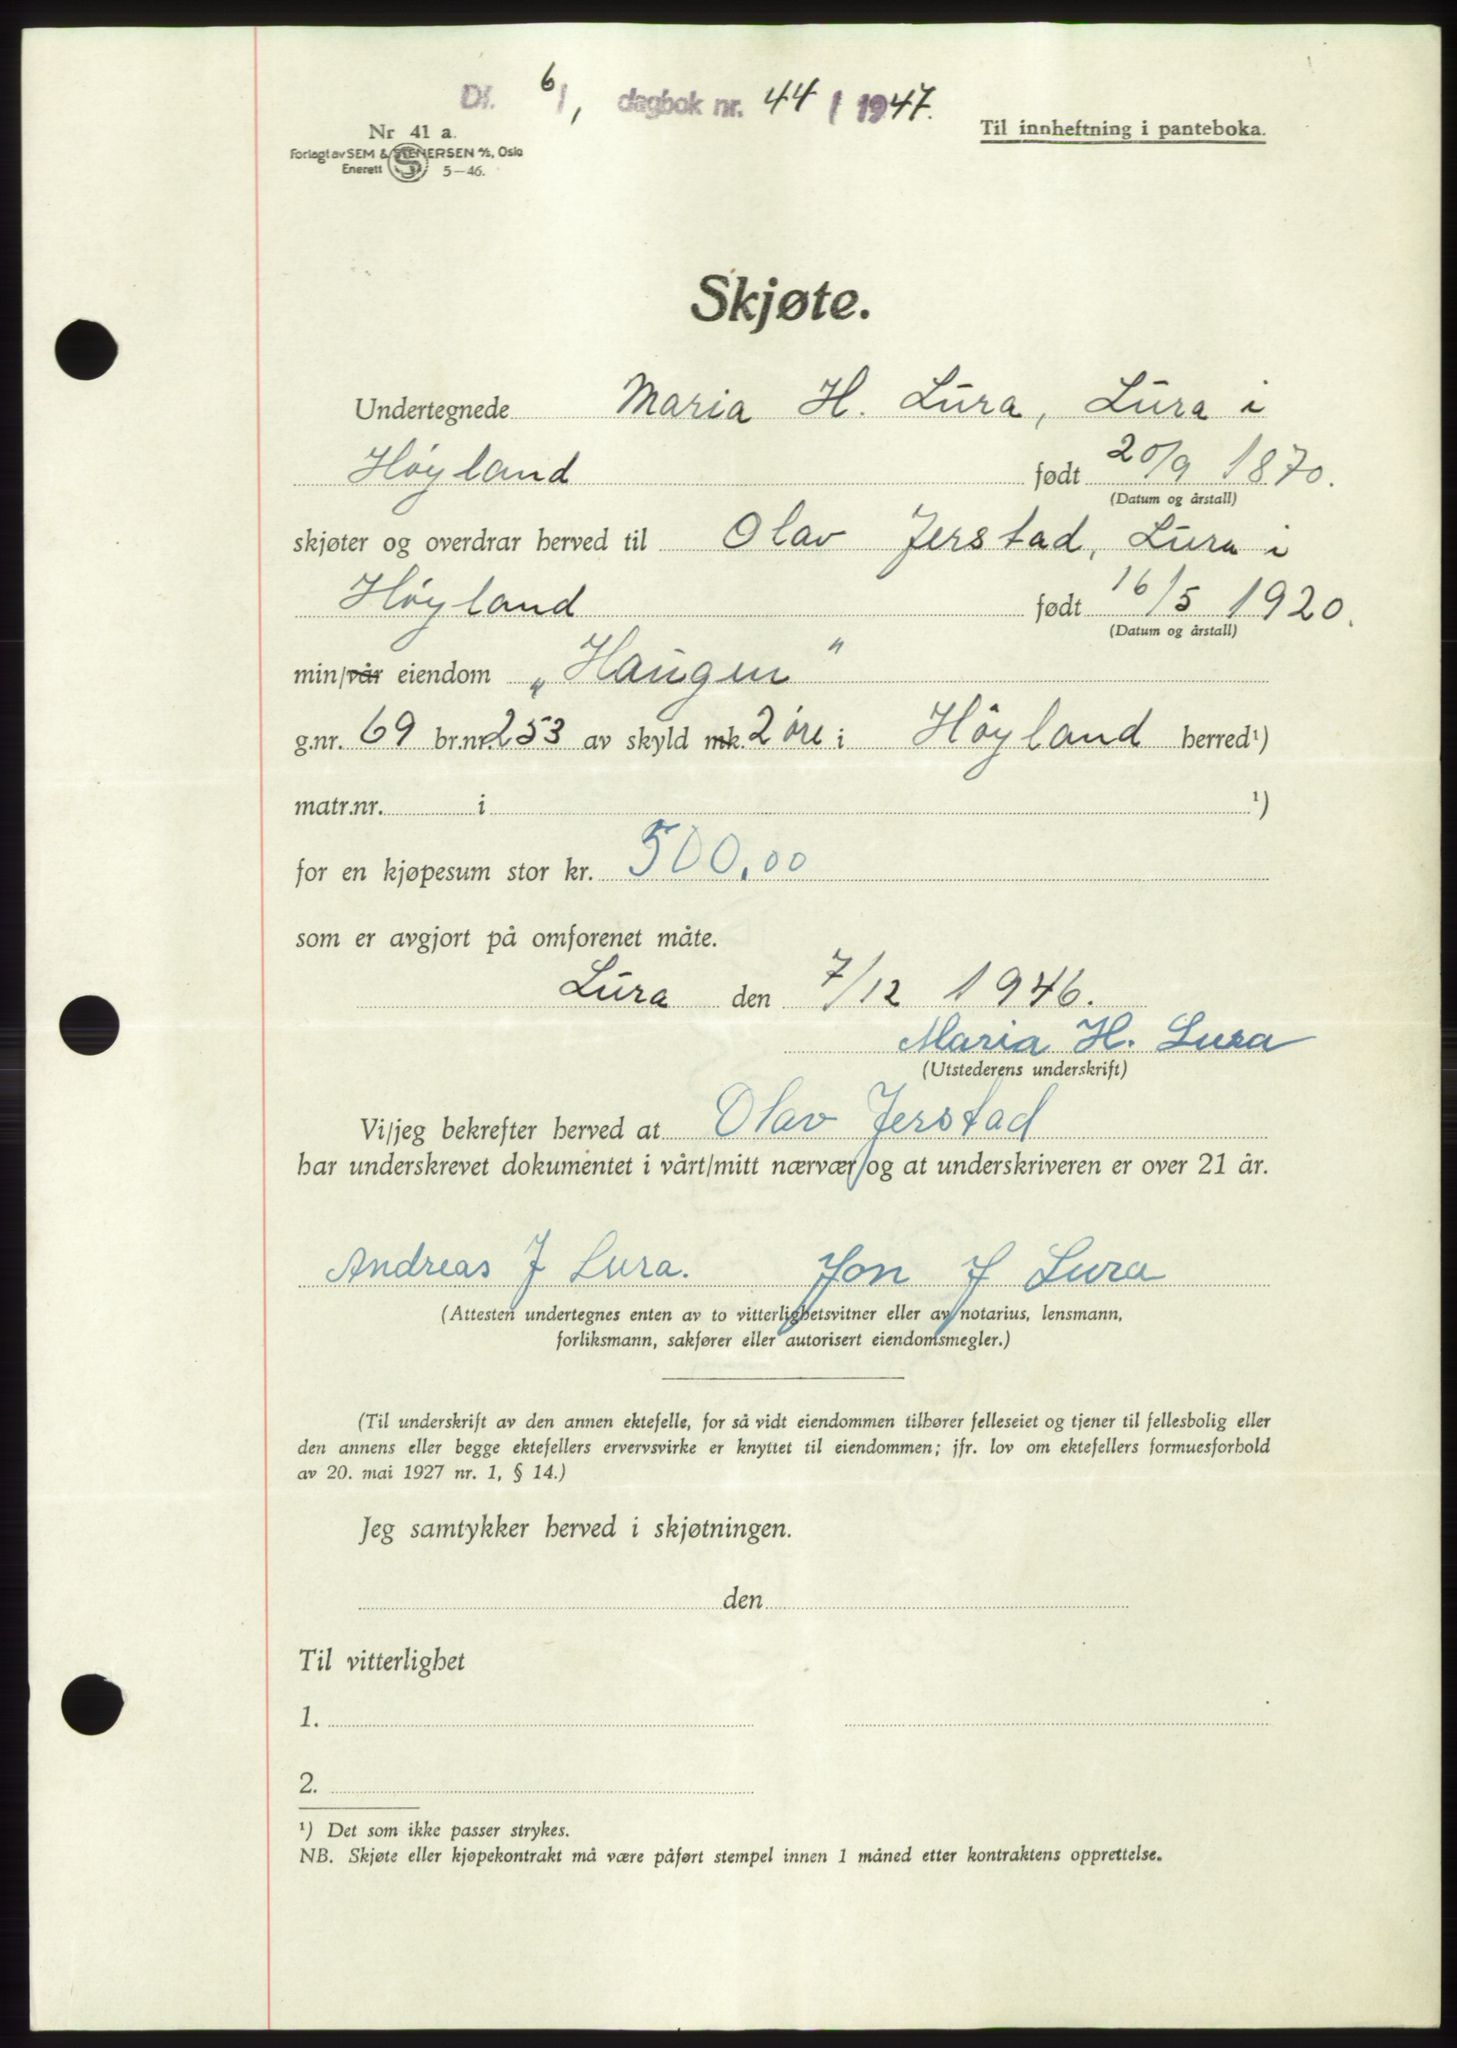 Df. 6/1, dagbok nr. 44 / 1947.
Nr 41 a.
Til innheftning i panteboka.
Forlagt av SEM & STENERSEN A/S, Oslo
Enerett S 5-46.
Skjøte.
Undertegnede Maria H. Lura, Lura i
Høyland født 20/9 1870.
(Datum og årstall)
skjøter og overdrar herved til Olav Jerstad, Lura i
Høyland født 16/5 1920.
(Datum og årstall)
min/vår eiendom „Haugen"
g.nr. 69 br.nr. 253 av skyld mk. 2 øre i Höyland herred¹)
matr.nr. i ¹)
for en kjøpesum stor kr. 500,00
som er avgjort på omforenet måte.
Lura den 7/12 1946.
Maria H. Lura
(Utstederens underskrift)
Vi/jeg bekrefter herved at Olav Jerstad
har underskrevet dokumentet i vårt/mitt nærvær og at underskriveren er over 21 år.
Andreas J Lura. Jon J Lura
(Attesten undertegnes enten av to vitterlighetsvitner eller av notarius, lensmann,
forliksmann, sakfører eller autorisert eiendomsmegler.)
(Til underskrift av den annen ektefelle, for så vidt eiendommen tilhører felleseiet og tjener til fellesbolig eller
den annens eller begge ektefellers ervervsvirke er knyttet til eiendommen; jfr. lov om ektefellers formuesforhold
av 20. mai 1927 nr. 1, § 14.)
Jeg samtykker herved i skjøtningen.
den
Til vitterlighet
1.
2.
¹) Det som ikke passer strykes.
NB. Skjøte eller kjøpekontrakt må være påført stempel innen 1 måned etter kontraktens opprettelse.